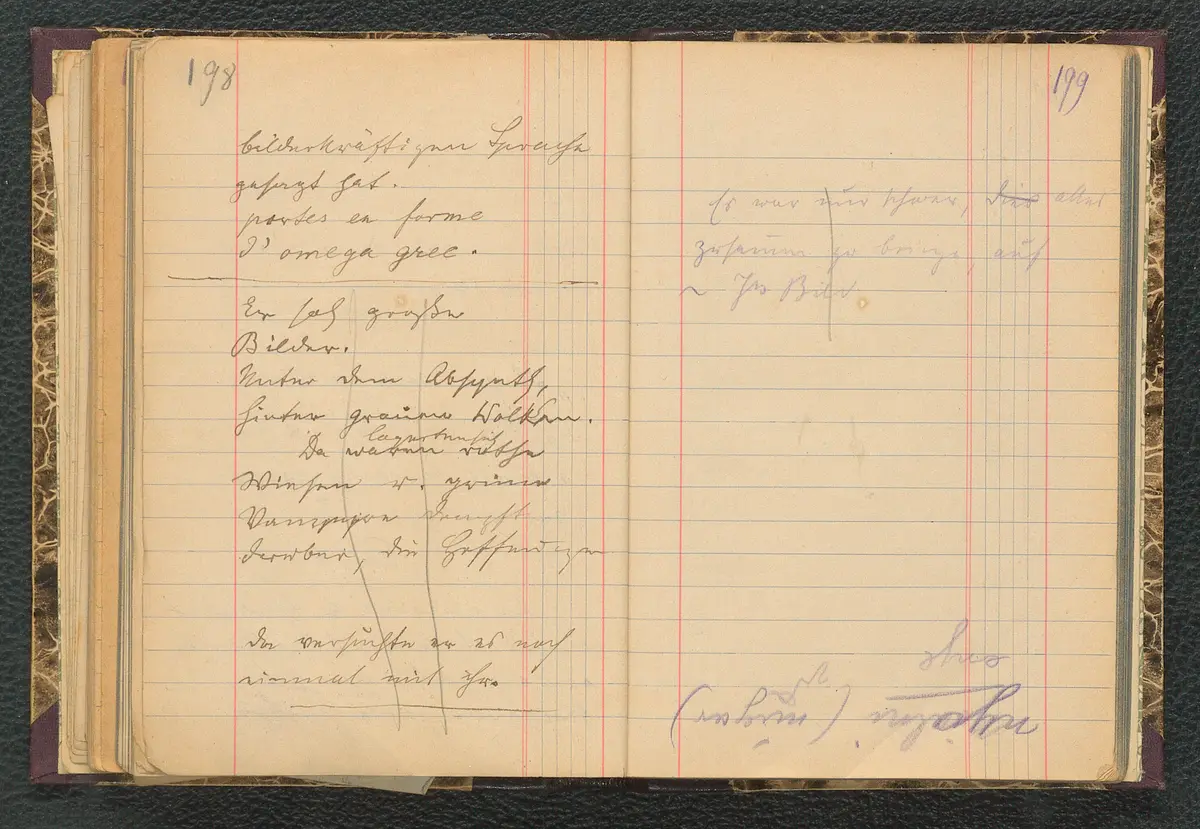 198
bilderkräftigen Sprache
gesagt hat.
portes en forme
d'omega gree.
Er sah große
Bilder.
Unter dem Absynth,
hinter grauen Wolken.
Da waren rothe
Wiesen u. grüne
Dampft
darüber, die Hoffnungen
da versuchte er es noch
einmal mit ihr.
199
Es war nur schwer, dies alles
zu bringen, auf
das Bild